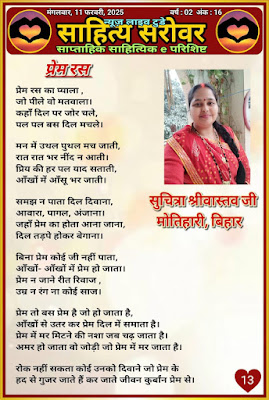 मंगलवार, 11 फरवरी, 2025
न्यूज़ लाइव टुडे
वर्ष : 02 अंक : 16
साहित्य सरोवर
साप्ताहिक साहित्यिक e परिशिष्ट
प्रेम रस
प्रेम रस का प्याला ,
जो पीले वो मतवाला।
कहाँ दिल पर जोर चले,
पल पल बस दिल मचले।
मन में उथल पुथल मच जाती,
रात रात भर नींद न आती।
प्रिय की हर पल याद सताती,
आँखों में आँसू भर जाती।
समझ न पाता दिल दिवाना,
आवारा, पागल, अंजाना।
जहाँ प्रेम का होता आना जाना,
दिल तड़पे होकर बेगाना।
बिना प्रेम कोई जी नहीं पाता,
आँखों- आँखों में प्रेम हो जाता।
प्रेम न जाने रीत रिवाज ,
उम्र न रंग ना कोई साज।
प्रेम तो बस प्रेम है जो हो जाता है,
आँखों से उतर कर प्रेम दिल में समाता है।
प्रेम में मर मिटने की नशा जब चढ़ जाता है।
अमर हो जाता वो जोड़ी जो प्रेम में मर जाता है।
रोक नहीं सकता कोई उनको दिवाने जो प्रेम के
हद से गुजर जाते हैं कर जाते जीवन कुर्बान प्रेम से।
सुचित्रा श्रीवास्तव जी
मोतिहारी, बिहार
13